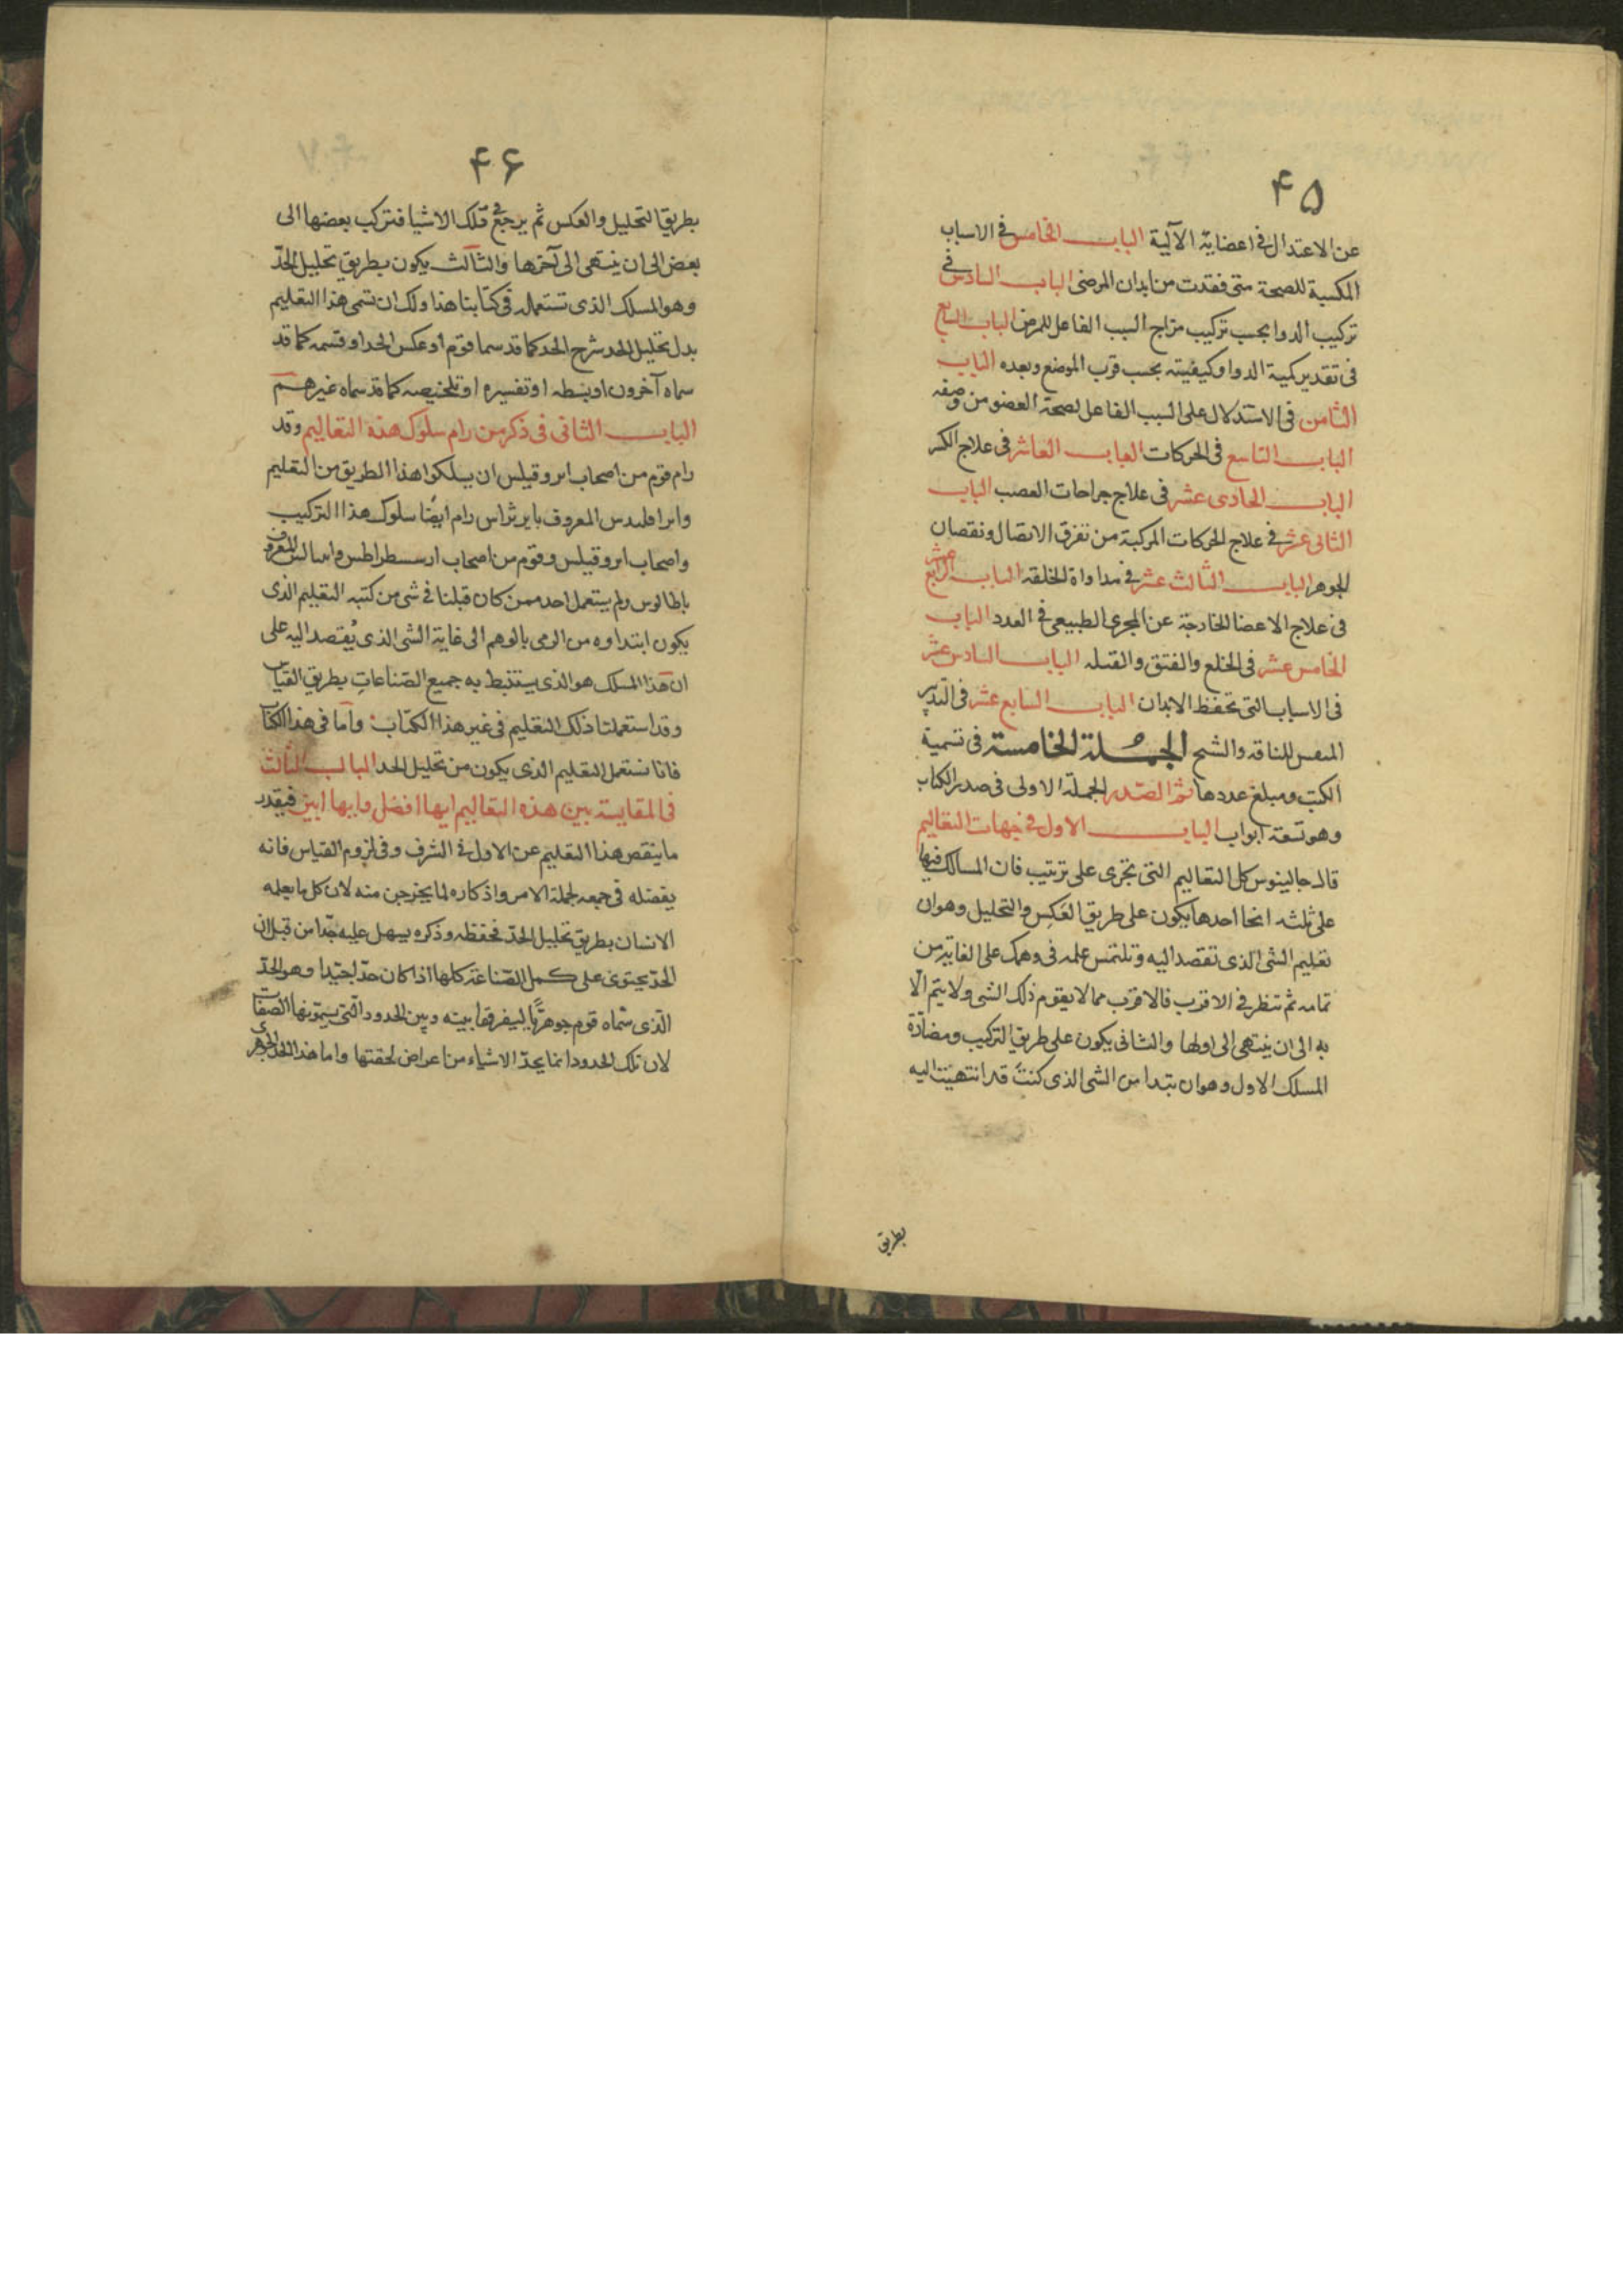 ۴۵
عن الاعتدال فى اعضايه الآلية الباب الخامس فى الاسباب
المكسبة للصحة متى فقدت من ابدان المرضى الباب السادس فى
تركيب الدوا بحسب تركيب مزاج السبب الفاعل للمرض الباب السابع
فى تقدير كمية الدوا وكيفيته بحسب قرب الموضع وبعده الباب
الثامن فى الاستدلال على السبب الفاعل لصحة العضو من وصفه
الباب التاسع فى الحركات الباب العاشر فى علاج الكسر
الباب الحادى عشر فى علاج جراحات العصب الباب
الثانى عشر فى علاج الحركات المركبة من تفرق الاتصال ونقصان
الجوهر الباب الثالث عشر فى مداواة الخلقه الباب الرابع عشر
فى علاج الاعضا الخارجة عن المجرى الطبيعى فى العدد الباب
الخامس عشر فى الخلع والفتق والقيله الباب السادس عشر
فى الاسباب التى تحفظ الابدان الباب السابع عشر فى التدبير
للناقه والشيخ الجملة الخامسة فى تسمية
الكتب ومبلغ عددها ثم الصدر الجملة الاولى فى صدر الكتاب
وهو تسعة ابواب الباب الاول فى جهات التعاليم
قال جالينوس كل التعاليم التى تجرى على ترتيب فان المسالك فيها
على ثلثه انحا احدها يكون على طريق العكس والتحليل وهو ان
تقيم الشى الذى تقصد اليه وتلتمس علمه فى وهمك على الغاية من
تمامه ثم تنظر فى الاقرب فالاقرب مما لا يقوم ذلك الشى ولا يتم الّا
به الى ان ينتهى الى اولها والثانى يكون على طريق التركيب ومضادّة
المسلك الاول وهو ان تبتدا من الشى الذى كنت قد انتهيت اليه
بطريق
۴۶
بطريق التحليل والعكس ثم يرجع فى تلك الاشيا فتركب بعضها الى
بعض الى ان ينتهى الى آخرها والثالث يكون بطريق تحليل الحدّ
وهو المسلك الذى تستعمله فى كتابنا هذا ولك ان تسمى هذا التعليم
بدل تحليل الحد شرح الحد كما قد سما قوم او عكس الحد او قسمه كما قد
سماه آخرون او بسطه او تفسيره او تلخيصه كما قد سماه غيرهم
الباب الثانى فى ذكر من رام سلوك هذه التعاليم وقد
رام قوم من اصحاب ايروقيلس ان يسلكوا هذا الطريق من التعليم
المعروف رام ايضا سلوك هذا التركيب
واصحاب ايروقيلس وقوم من اصحاب ارسسطراطس المعروف
ولم يستعمل احد ممن كان قبلنا فى شى من كتبه التعليم الذى
يكون ابتداوه من الرمى بالوهم الى غاية الشى الذى يُقصد اليه على
ان هذا المسلك هو الذى يستنبط به جميع الصّناعات بطريق القياس
وقد استعملنا ذلك التعليم فى غير هذا الكتاب وأما فى هذا الكتاب
فانا نستعمل التعليم الذى يكون من تحليل الحد الباب الثالث
فى المقايسة بين هذه التعاليم ايها افضل وايها ابين فبقدر
ما ينقص هذا التعليم عن الاول فى الشرف وفى لزوم القياس فانه
يفضله فى جمعه لجملة الامر واذكاره لما يخرجن منه لان كل ما يعلمه
الانسان بطريق تحليل الحدّ فحفظه وذكره يسهل عليه جدّا من قبل ان
الحدّ يحتوى على كمل الصّناعة كلها اذا كان حدّا جيّدا وهو الحدّ
الّذى سّماه قوم جوهريّا ليفرقوا بينه وبين الحدود الّتى يسمّونها الصفات
لان تلك الحدود انما يحدّ الاشياء من اعراض لحقتها واما هذا الحد الجوهرى